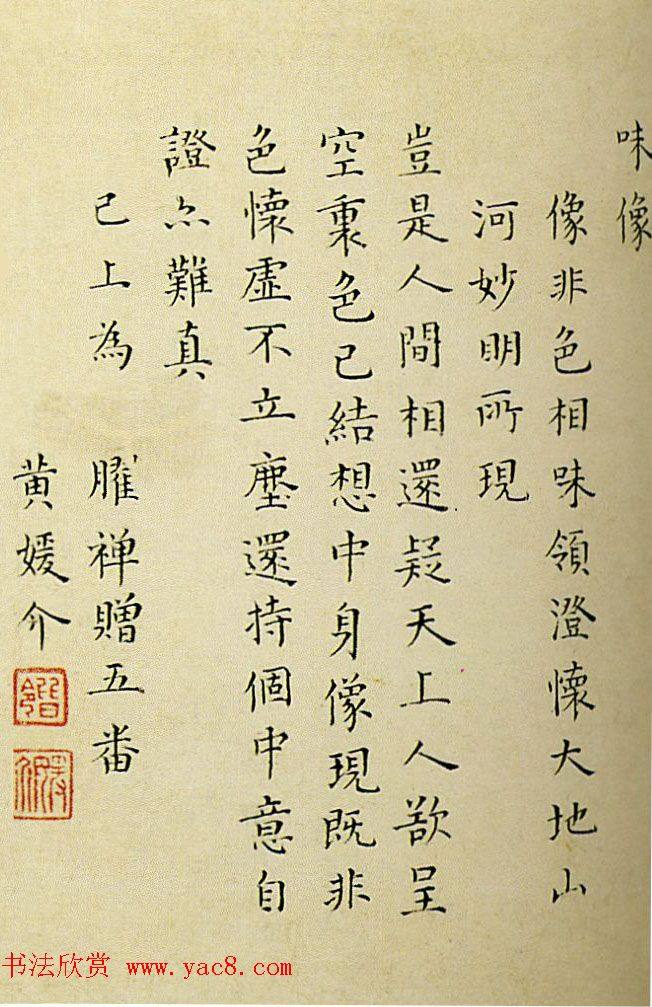 味像
像非色相味領澄懷大地山
河妙明所現
豈是人間相還疑天上人欲呈
空裏色已結想中身像現既非
色懷虛不立塵還持個中意自
證亦難真
已上為 臞禅贈五番
黄媛介
书法欣赏 www.yac8.com